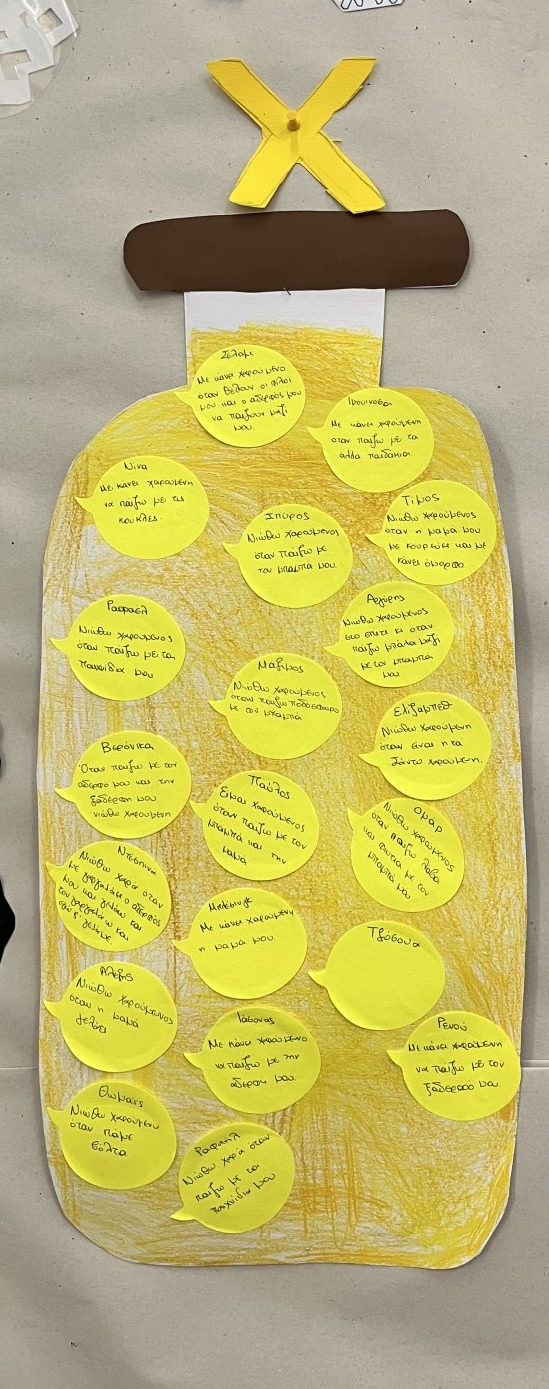 Σελομ
Με κάνει χαρούμενο
όταν θέλουν οι φίλοι
μου και ο αδερφός μου
να παίζουν μαζί
μου.
Με κάνει χαρούμενη
όταν παίζω με τα
άλλα παιδάκια
Νίνα
Με κάνει χαρούμενη
να παίζω με τις
κούκλες.
Τίμος
Νιώθω χαρούμενος
όταν η μαμά μου
με κουρεύει και με
κάνει όμορφο
Σπύρος
Νιώθω χαρούμενος
όταν παίζω με
τον μπαμπά μου.
Αργύρης
Νιώθω χαρούμενος
στο σπίτι κι όταν
παίζω μπάλα μαζί
με τον μπαμπά
μου
Ραφαέλ
Νιώθω χαρούμενος
όταν παίζω με τα
παιχνίδια μου
Μάξιμος
Νιώθω χαρούμενος
όταν παίζω ποδόσφαιρο
με τον μπαμπά
Ελίζαμπεθ
Νιώθω χαρούμενη
όταν είναι η τα
χαρούμενη.
Βερόνικα
Όταν παίζω με τον
αδερφό μου και την
ξαδέρφη μου
νιώθω χαρούμενη
Παύλος
Είμαι χαρούμενος
όταν παίζω με τον
μπαμπά και την
μαμά
Ομάρ
Νιώθω χαρούμενος
όταν παίζω
και με τον
μπαμπά μου
Ντεσπίνα
Νιώθω χαρά όταν
με γαργαλάει ο αδερφός
μου και γελάω και
τον γαργαλάω και
γελάμε
Μπλέσινγκ
Με κάνει χαρούμενη
η μαμά μου
Τζόσουα
Αλέξης
Νιώθω χαρούμενος
όταν η μαμά
γελάει
Ιάσονας
Με κάνει χαρούμενο
να παίζω με την
αδερφή μου.
Ρενού
Με κάνει χαρούμενη
να παίζω με τον
ξάδερφό μου.
Θωμαΐς
Νιώθω χαρούμενη
όταν πάμε
βόλτα
Ραφαήλ
Νιώθω χαρά όταν
παίζω με τα
παιχνίδια μου